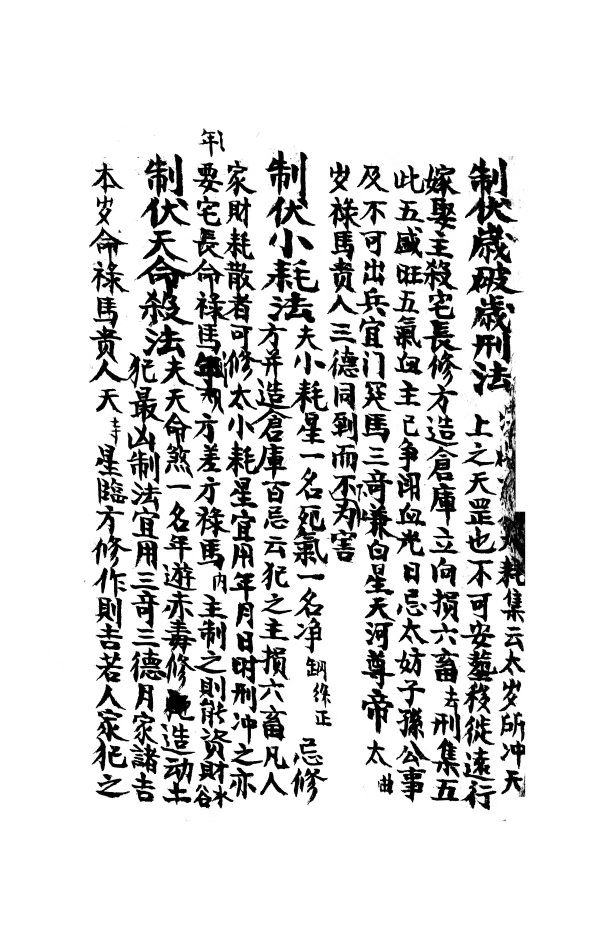 制伏歲破歲刑法 耗集云太岁所冲天
上之天罡也不可安塟移徙遠行
嫁娶主殺宅長修方造倉庫立向損六畜去刑集五
此五盛旺五氣血主已争闹血光日忌太妨子孫公事
及不可出兵宜门冠馬三竒兼白星天河尊帝太曲
岁禄馬贵人三德同到而不为害
制伏小耗法 夫小耗星一名死氣一名净 忌修
方并造倉庫百忌云犯之主損六畜凡人
家財耗散者可修太小耗星宜用年月日时刑冲之亦
要宅長命禄馬 方差方禄馬内主制之则能资財水谷
制伏天命殺法 夫天命煞一名年遊赤毒修造动土
犯最凶制法宜用三竒三德月家諸吉
本岁命禄馬贵人天星臨方修作則吉若人家犯之